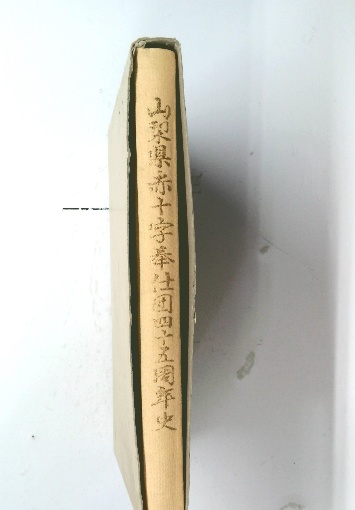 山梨県赤十字奉仕団四十五周年史